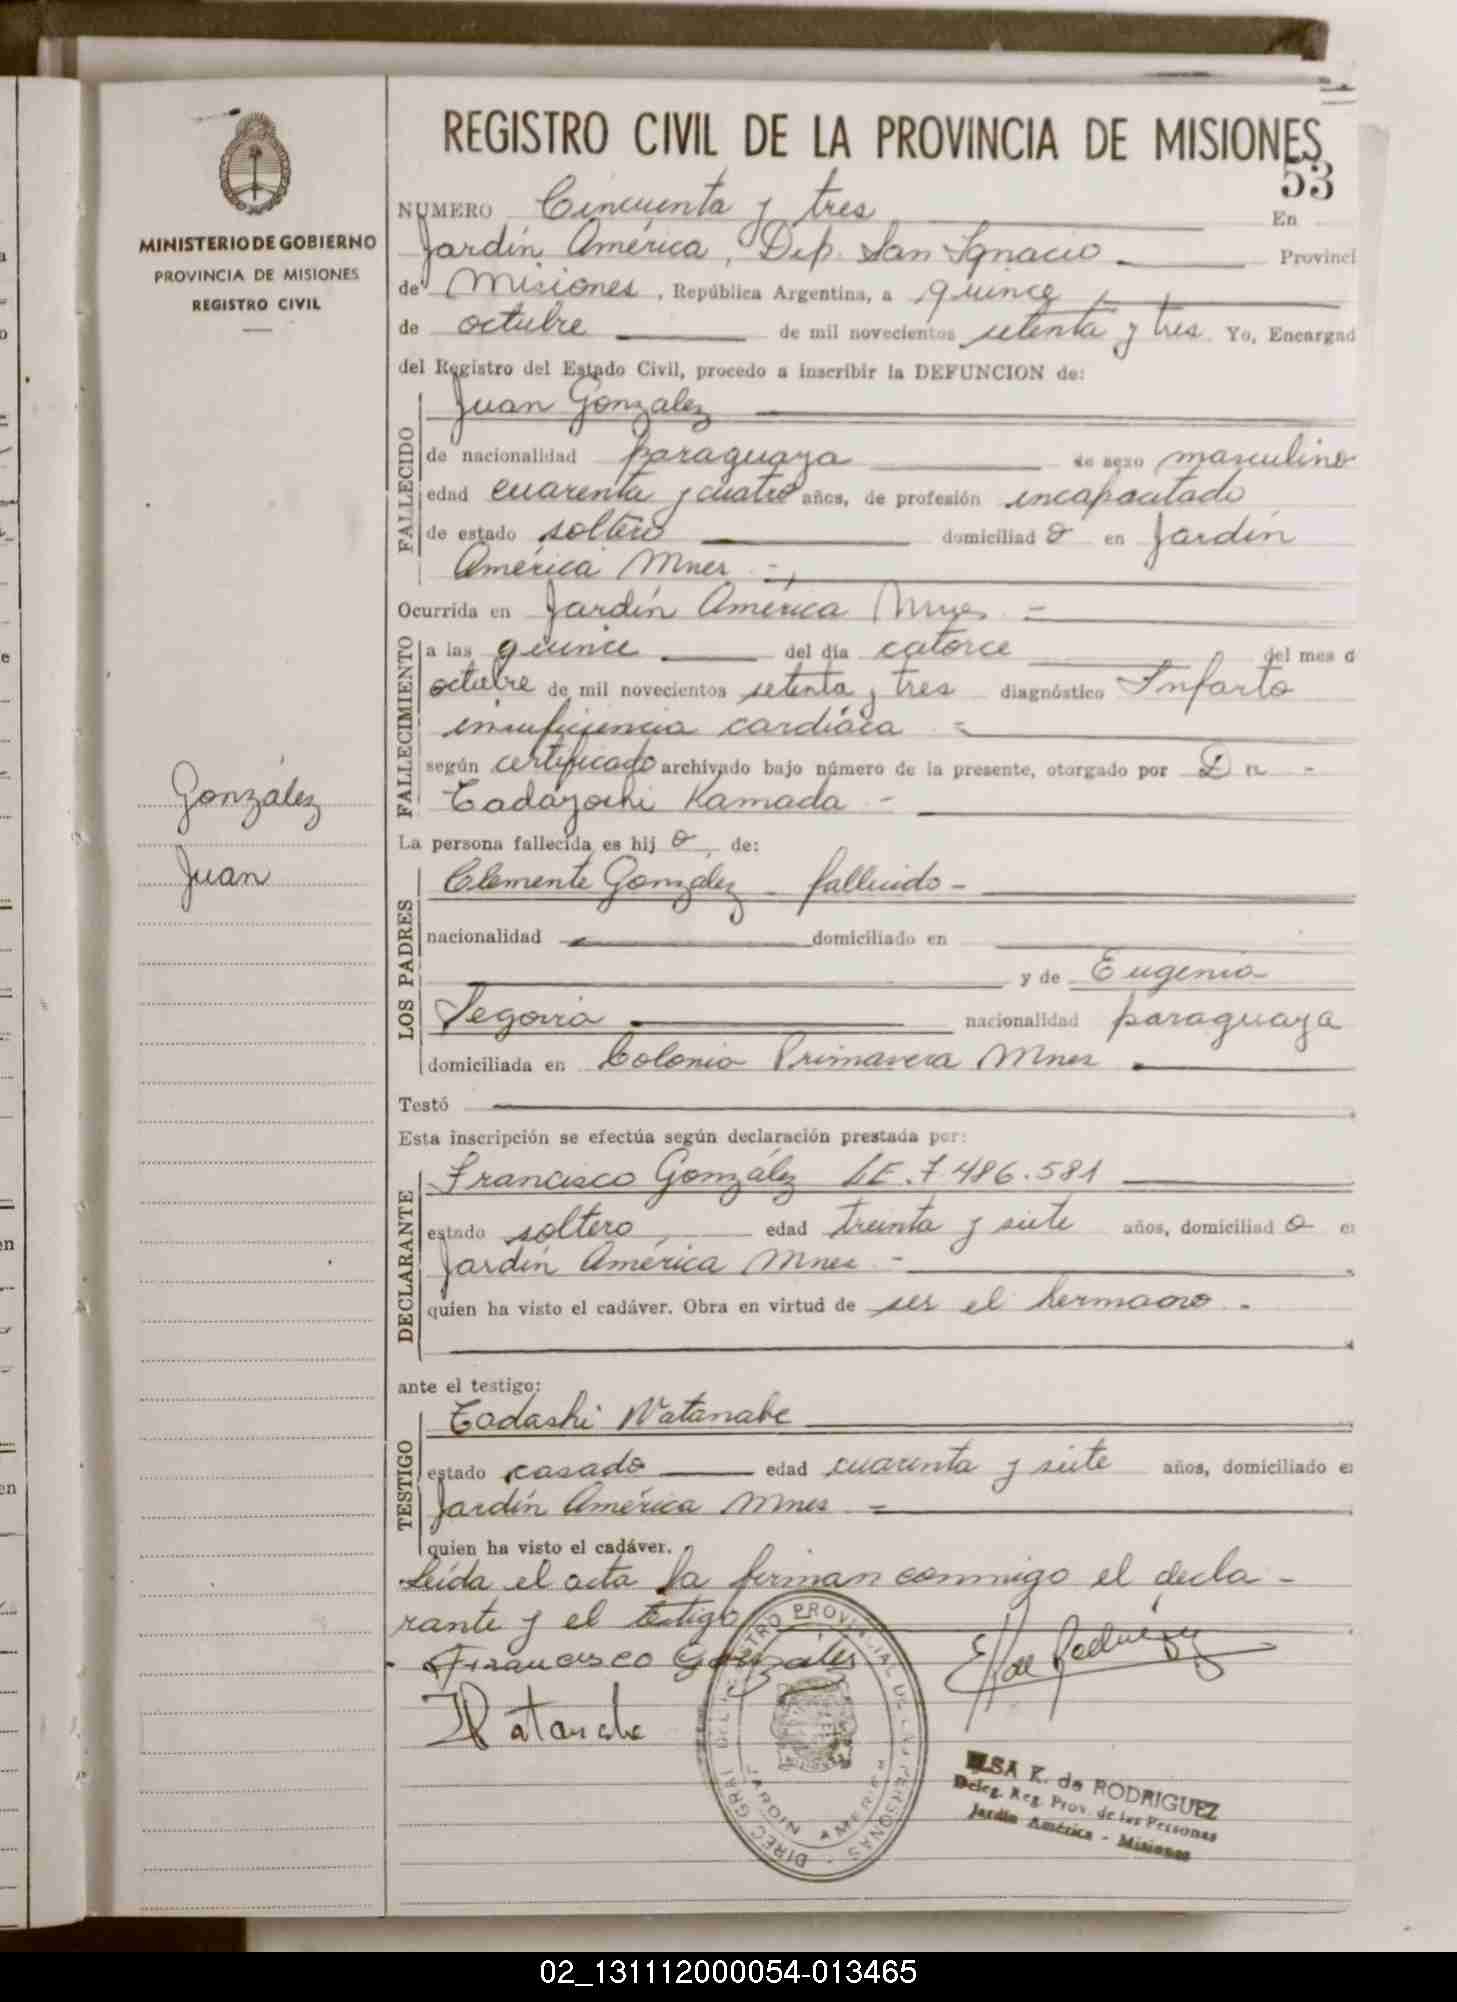 REGISTRO CIVIL DE LA PROVINCIA DE MISIONES
53
MINISTERIO DE GOBIERNO
PROVINCIA DE MISIONES
REGISTRO CIVIL
González
Juan
NUMERO Cincuenta y tres En
Jardín América, Dep. San Ignacio Provinci
de Misiones, República Argentina, a quince
de octubre de mil novecientos setenta y tres. Yo, Encargad
del Registro del Estado Civil, procedo a inscribir la DEFUNCION de:
FALLECIDO
Juan González
de nacionalidad paraguaya de sexo masculino
edad cuarenta y cuatro años, de profesión incapacitado
de estado soltero domiciliad o en Jardín
América Mnes
Ocurrida en Jardín América Mnes
FALLECIMIENTO
a las quince del día catorce del mes d
octubre de mil novecientos setenta y tres diagnóstico Infarto
insuficiencia cardíaca
según certificado archivado bajo número de la presente, otorgado por Dr
Tadayoshi Kamada
La persona fallecida es hij o, de:
LOS PADRES
Clemente González - fallecido -
nacionalidad domiciliado en
y de Eugenia
Segovia nacionalidad paraguaya
domiciliada en Colonia Primavera Mnes
Testó
Esta inscripción se efectúa según declaración prestada por:
DECLARANTE
Francisco González LE. 7 486.581
estado soltero, edad treinta y siete años, domiciliad o e
Jardín América Mnes
quien ha visto el cadáver. Obra en virtud de ser el hermano.
ante el testigo:
TESTIGO
Tadashi Watanabe
estado casado edad cuarenta y siete años, domiciliado e
Jardín América Mnes
quien ha visto el cadáver.
Leída el acta la firman conmigo el decla-
rante y el testigo
Francisco Gonzales
Watanabe
DIREC. GRAL. DEL REGISTRO PROVINCIAL DE LAS PERSONAS
JARDIN AMERICA
ELSA K. de RODRIGUEZ
Deleg. Reg. Prov. de las Personas
Jardín América - Misiones
02_131112000054-013465